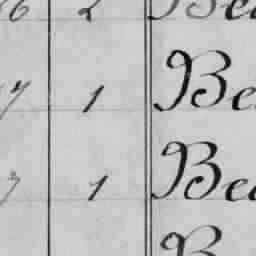 6 2 Bea
7 1 Be
7 1 Bea
B